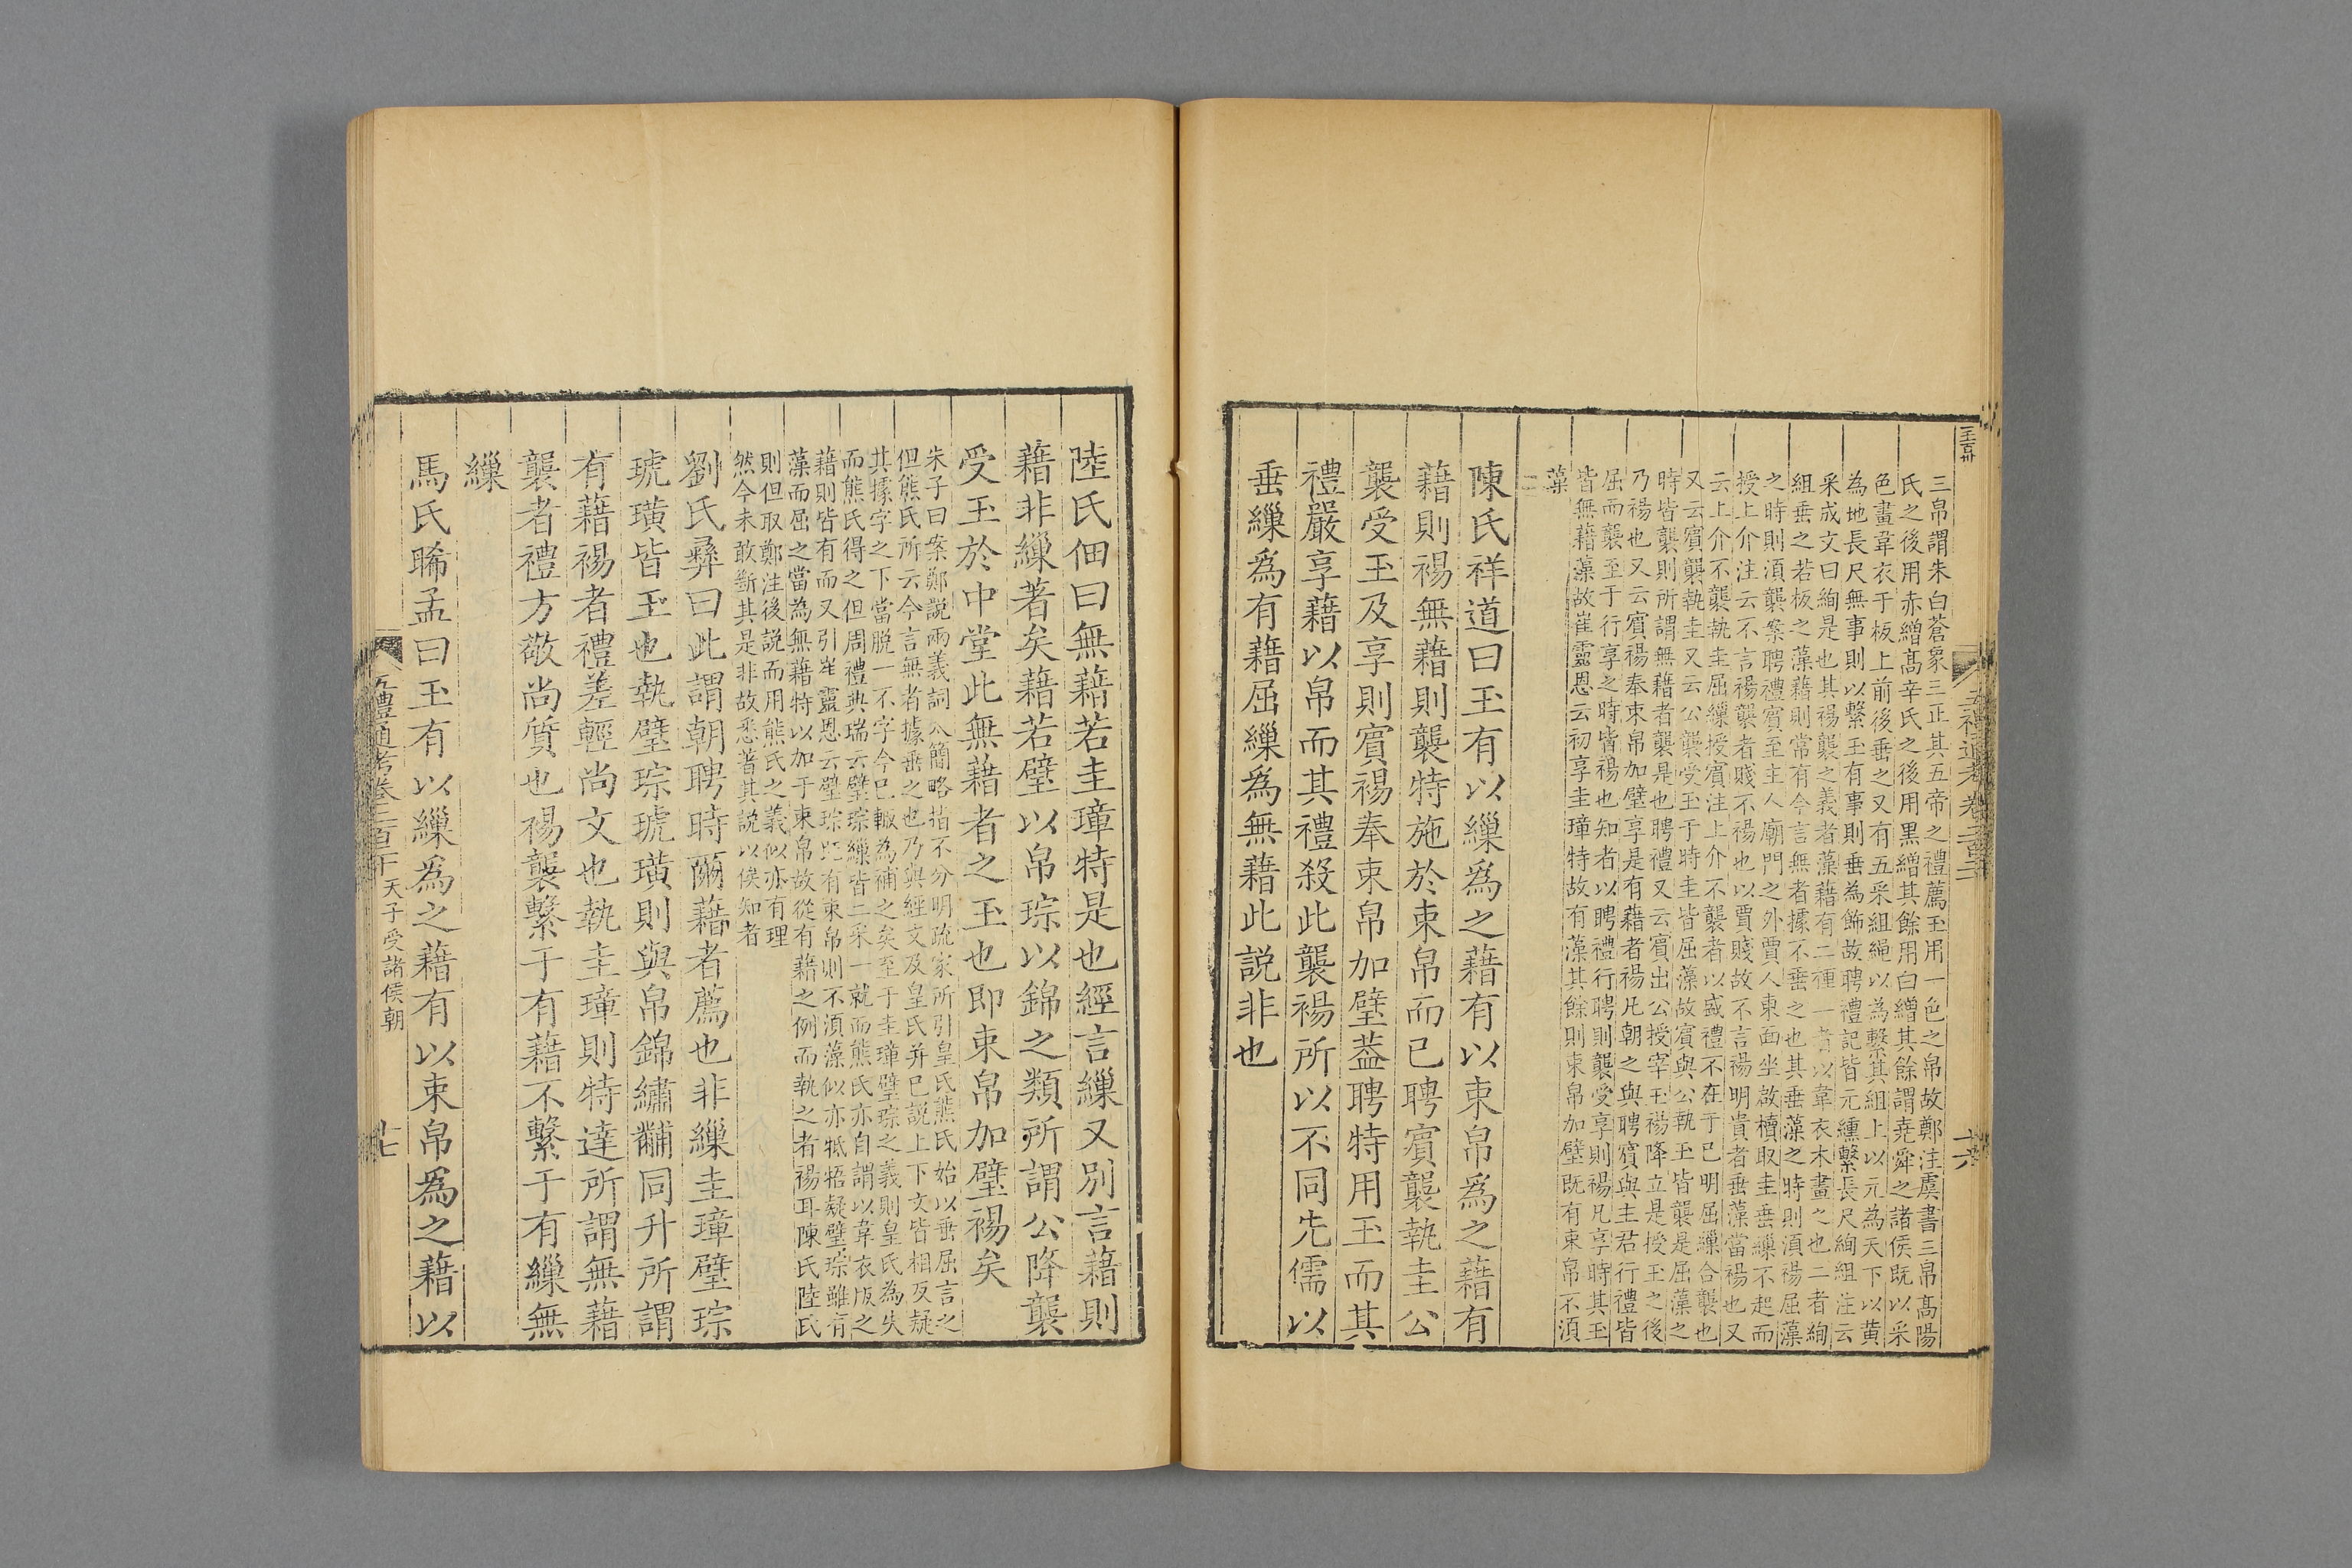 三帛謂朱白蒼象三正其五帝之禮薦玉用一色之帛故鄭注虞書三帛高陽
氏之後用赤繒高辛氏之後用黑繒其餘用白繒其餘謂堯舜之諸侯既以采
色畫韋衣于板上前後垂之又有五采組繩以為繫其組上以元為天下以黃
為地長尺無事則以繫玉有事則垂為飾故聘禮記皆元纁繫長尺絢組注云
采成文曰絢是也其裼襲之義者藻藉有二種一者以韋衣木畫之也二者絢
組垂之若板之藻藉則常有今言無者據不垂之也其垂藻之時則須裼屈藻
之時則須襲案聘禮賓至主人廟門之外賈人東面坐啟櫝取圭垂繅不起而
授上介注云不言裼襲者賤不裼也以賈賤故不言裼明貴者垂藻當裼也又
云上介不襲執圭屈繅授賓注上介不襲者以盛禮不在于已明屈繅合襲也
又云賓襲執圭又云公襲受玉于時圭皆屈藻故賓與公執玉皆襲是屈藻之
時皆襲則所謂無藉者襲是也聘禮又云賓出公授宰玉裼降立是授玉之後
乃裼也又云賓裼奉束帛加璧享是有藉者裼凡朝之與聘賓與主君行禮皆
屈而襲至于行享之時皆裼也知者以聘禮行聘則襲受享則裼凡享時其玉
皆無藉藻故崔靈恩云初享圭璋特故有藻其餘則束帛加璧既有束帛不須
藻
陳氏祥道曰玉有以繅為之藉有以束帛為之藉有
藉則裼無藉則襲特施於束帛而已聘賓襲執圭公
襲受玉及享則賓裼奉束帛加璧蓋聘特用玉而其
禮嚴享藉以帛而其禮殺此襲裼所以不同先儒以
垂繅為有藉屈繅為無藉此說非也
五禮通考卷二百二十
十六
陸氏佃曰無藉若圭璋特是也經言繅又別言藉則
藉非繅著矣藉若璧以帛琮以錦之類所謂公降襲
受玉於中堂此無藉者之玉也即束帛加璧裼矣
朱子曰案鄭說兩義詞太簡略指不分明疏家所引皇氏熊氏始以垂屈言之
但熊氏所云今言無者據垂之也乃與經文及皇氏并已說上下文皆相反疑
其據字之下當脫一不字今已輒為補之矣至于圭璋璧琮之義則皇氏為失
而熊氏得之但周禮典瑞云璧琮繅皆二采一就而熊氏亦自謂以韋衣版之
藉則皆有而又引崔靈恩云璧琮既有束帛則不須藻似亦牴牾疑璧琮雖有
藻而屈之當為無藉特以加于束帛故從有藉之例而執之者裼耳陳氏陸氏
則但取鄭注後說而用熊氏之義似亦有理
然今未敢斷其是非故悉著其說以俟知者
劉氏彝曰此謂朝聘時爾藉者薦也非繅圭璋璧琮
琥璜皆玉也執璧琮琥璜則與帛錦繡黼同升所謂
有藉裼者禮差輕尚文也執圭璋則特達所謂無藉
襲者禮方敬尚質也裼襲繫于有藉不繫于有繅無
繅
馬氏晞孟曰玉有以繅為之藉有以束帛為之藉以
五禮通考卷二百二十 天子受諸侯朝
十七